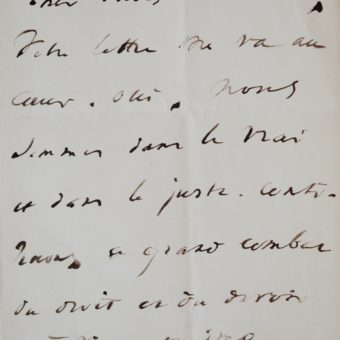 Cher
Votre lettre me va au
cœur. oui, nous
sommes dans le vrai
et dans le juste. conti-
nuons ce grand combat
du droit et du devoir